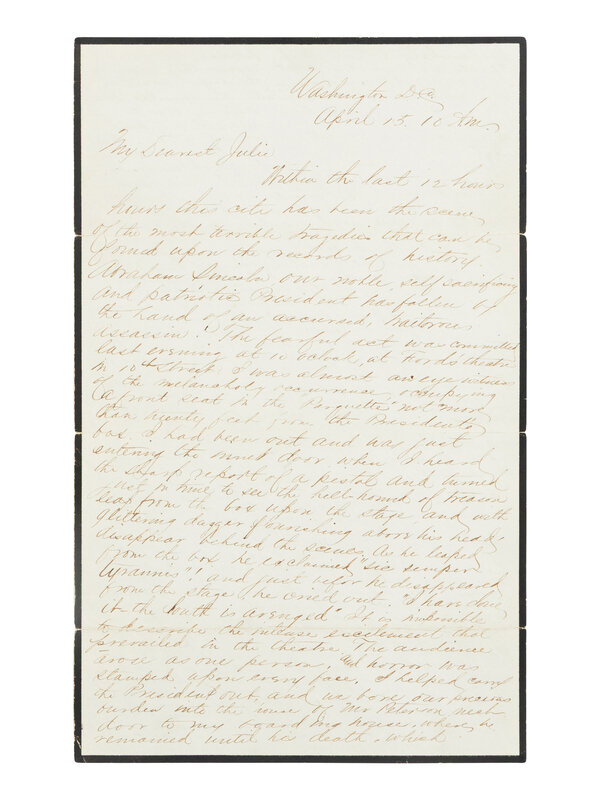 Washington D.C.
April 15. 10 Am.
My Dearest Julie
Within the last 12 hours
hours this citi has been the scene
of the most terrible tragedie that can be
found upon the records of history
Abraham Lincoln our noble, self sacrificing
and patriotic President has fallen by
the hand of an accursed, traitorous
assassin. The fearful act was committed
last evening at 10 oclock, at Fords theatre
in 10th Street. I was almost an eye witness
of the melancholy occurrence, occupying
a front seat in the Parquette not more
than twenty feet from the President's
box. I had been out and was just
entering the inner door when I heard
the sharp report of a pistol and turned
just in time to see the hellhound of treason
leap from the box upon the stage and with
glittering dagger flourishing above his head
disappear behind the scenes. As he leaped
from the box he exclaimed "sic semper
tyrannis"! and just before he disappeared
from the stage he cried out. "I have done
it the South is avenged" It is impossible
to describe the intense excitement that
prevailed in the theatre The audience
arose as one person, and horror was
stamped upon every face. I helped carry
the President out, and we bore our precious
burden into the house of Mr Peterson next
door to my boarding house, where he
remained until his death, which